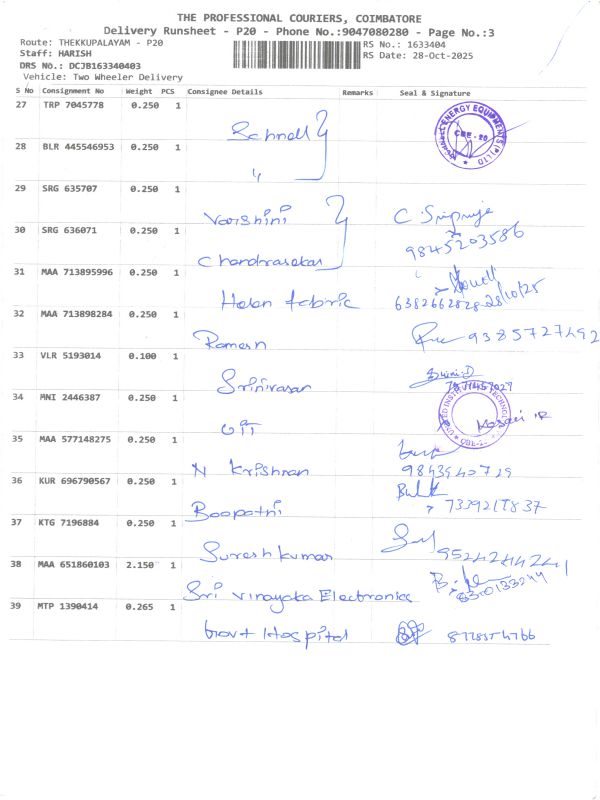 THE PROFESSIONAL COURIERS, COIMBATORE
Delivery Runsheet - P20 - Phone No.:9047080280 - Page No.:3
Route: THEKKUPALAYAM - P20
RS No.: 1633404
Staff: HARISH
RS Date: 28-Oct-2025
DRS No.: DCJB163340403
Vehicle: Two Wheeler Delivery
S No Consignment No Weight PCS Consignee Details Remarks Seal & Signature
27 TRP 7045778 0.250 1
Schnell
CBE-20
28 BLR 445546953 0.250 1
"
29 SRG 635707 0.250 1
Varshini
30 SRG 636071 0.250 1
9845203586
Chandrasekar
31 MAA 713895996 0.250 1
Helan fabric
6382662828 28/10/25
32 MAA 713898284 0.250 1
Ramesh
9385727492
33 VLR 5193014 0.100 1
Srinivasan
34 MNI 2446387 0.250 1
UIT
35 MAA 577148275 0.250 1
N Krishnan
36 KUR 696790567 0.250 1
Boopathi
37 KTG 7196884 0.250 1
Suresh kumar
38 MAA 651860103 2.150 1
Sri Vinayaka Electronics
39 MTP 1390414 0.265 1
Govt Hospital